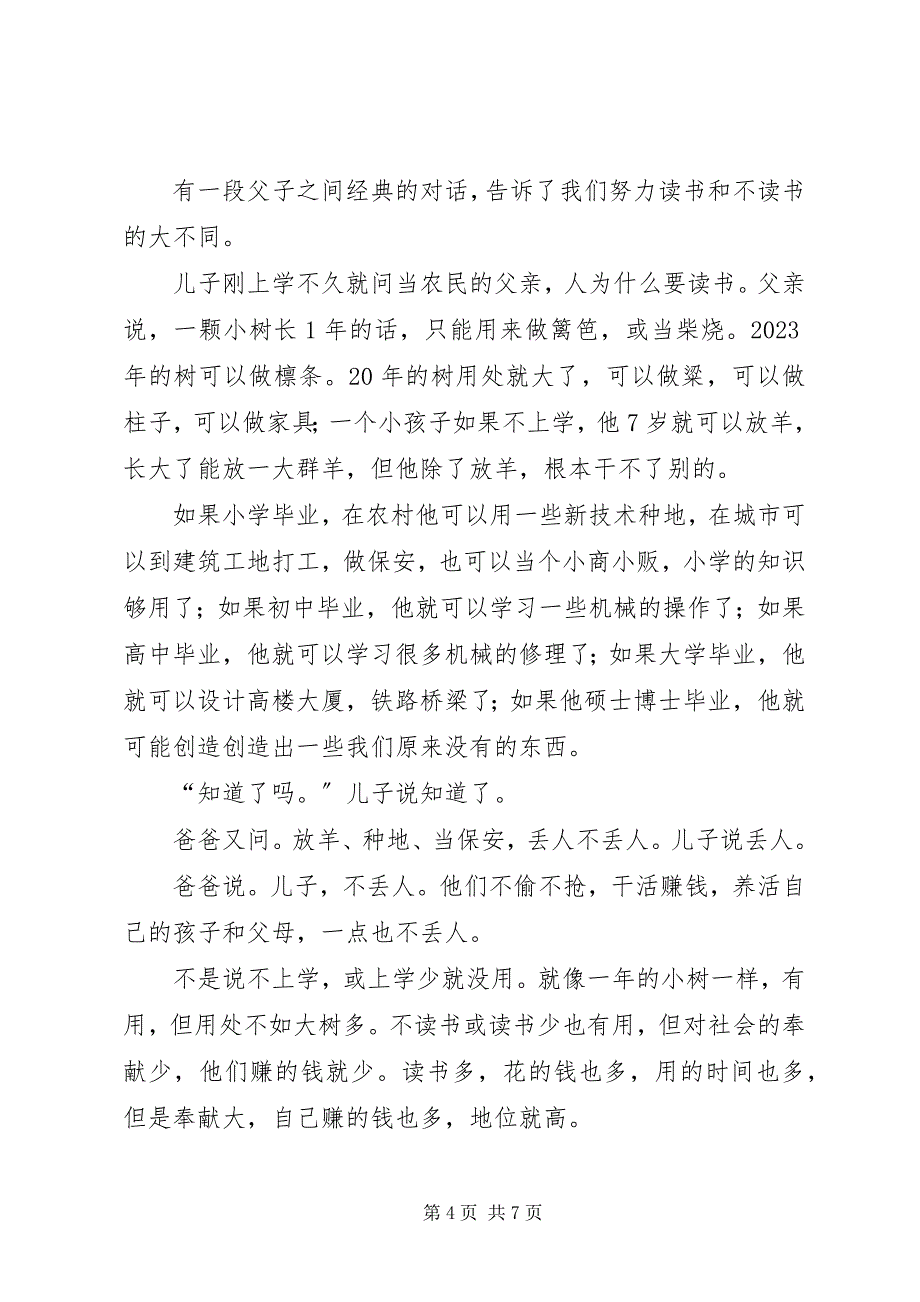 有一段父子之间经典的对话，告诉了我们努力读书和不读书
的大不同。
儿子刚上学不久就问当农民的父亲，人为什么要读书。父亲
说，一颗小树长 1 年的话，只能用来做篱笆，或当柴烧。2023
年的树可以做檩条。20 年的树用处就大了，可以做粱，可以做
柱子，可以做家具；一个小孩子如果不上学，他 7 岁就可以放羊，
长大了能放一大群羊，但他除了放羊，根本干不了别的。
如果小学毕业，在农村他可以用一些新技术种地，在城市可
以到建筑工地打工，做保安，也可以当个小商小贩，小学的知识
够用了；如果初中毕业，他就可以学习一些机械的操作了；如果
高中毕业，他就可以学习很多机械的修理了；如果大学毕业，他
就可以设计高楼大厦，铁路桥梁了；如果他硕士博士毕业，他就
可能创造创造出一些我们原来没有的东西。
“知道了吗。〞儿子说知道了。
爸爸又问。放羊、种地、当保安，丢人不丢人。儿子说丢人。
爸爸说。儿子，不丢人。他们不偷不抢，干活赚钱，养活自
己的孩子和父母，一点也不丢人。
不是说不上学，或上学少就没用。就像一年的小树一样，有
用，但用处不如大树多。不读书或读书少也有用，但对社会的奉
献少，他们赚的钱就少。读书多，花的钱也多，用的时间也多，
但是奉献大，自己赚的钱也多，地位就高。
第 4 页 共 7 页